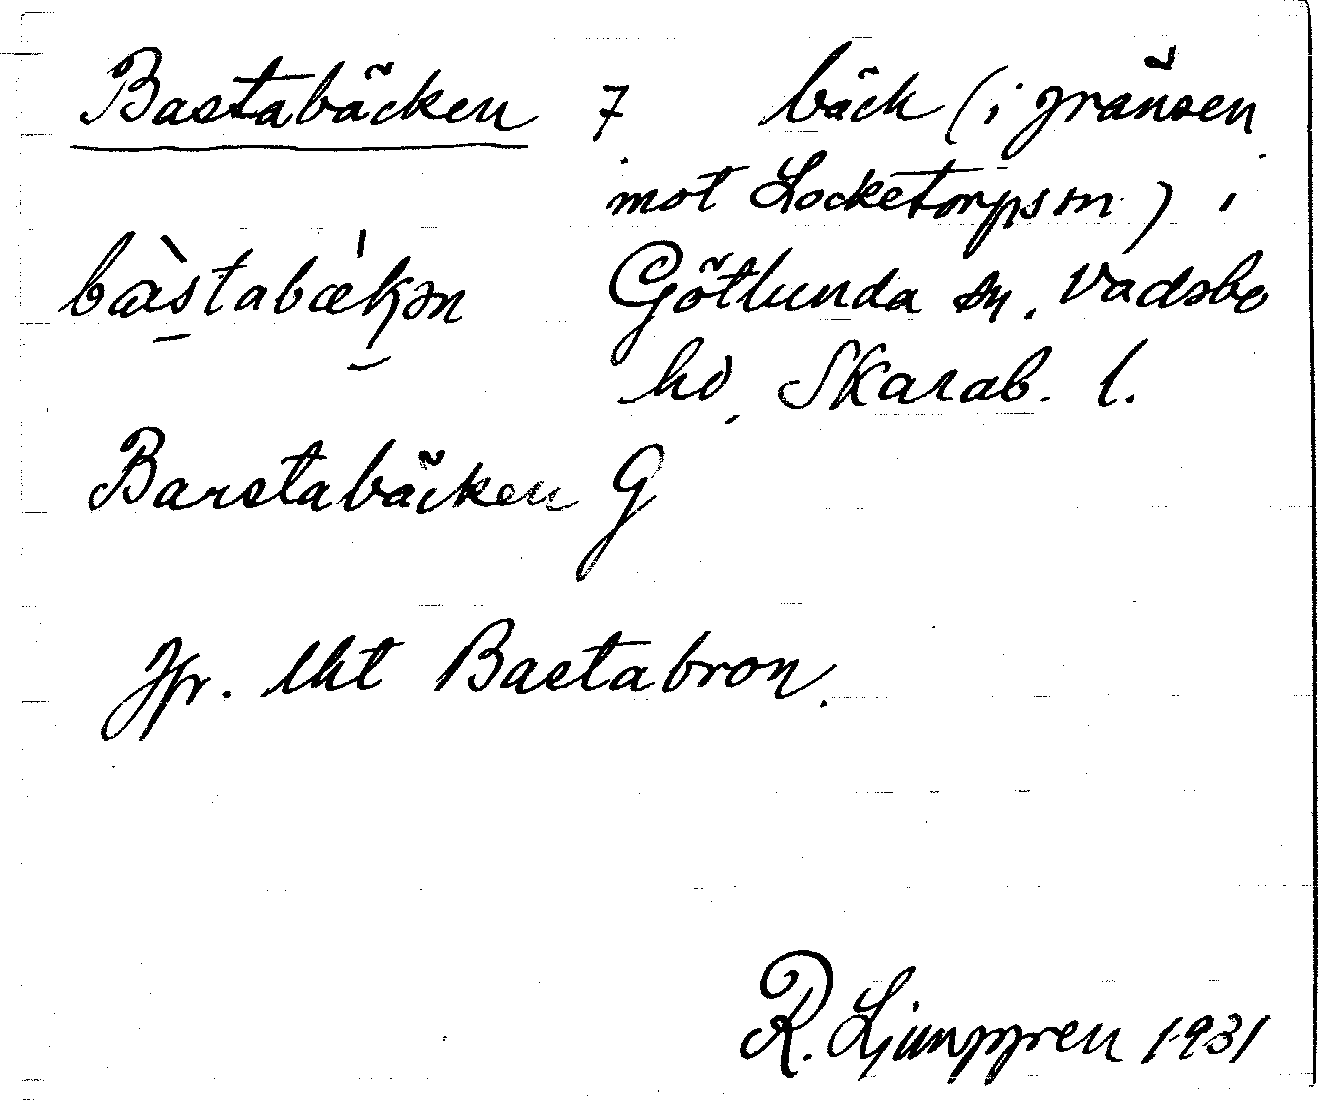 Bastabäcken 7 bäck (i gränsen
mot Locketorps sn) i
bàstabækən Götlunda sn. Vadsbo
hd, Skarab. l.
Barstabäcken G
Jfr. Uht Bastabron.
R. Ljunggren 1931